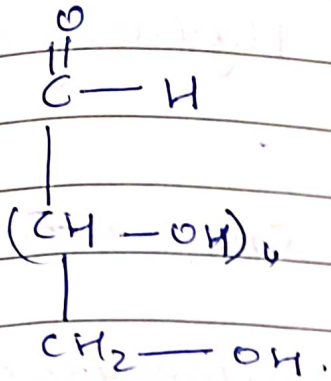 O
||
C — H
|
(CH — OH)₄
|
CH₂ — OH.